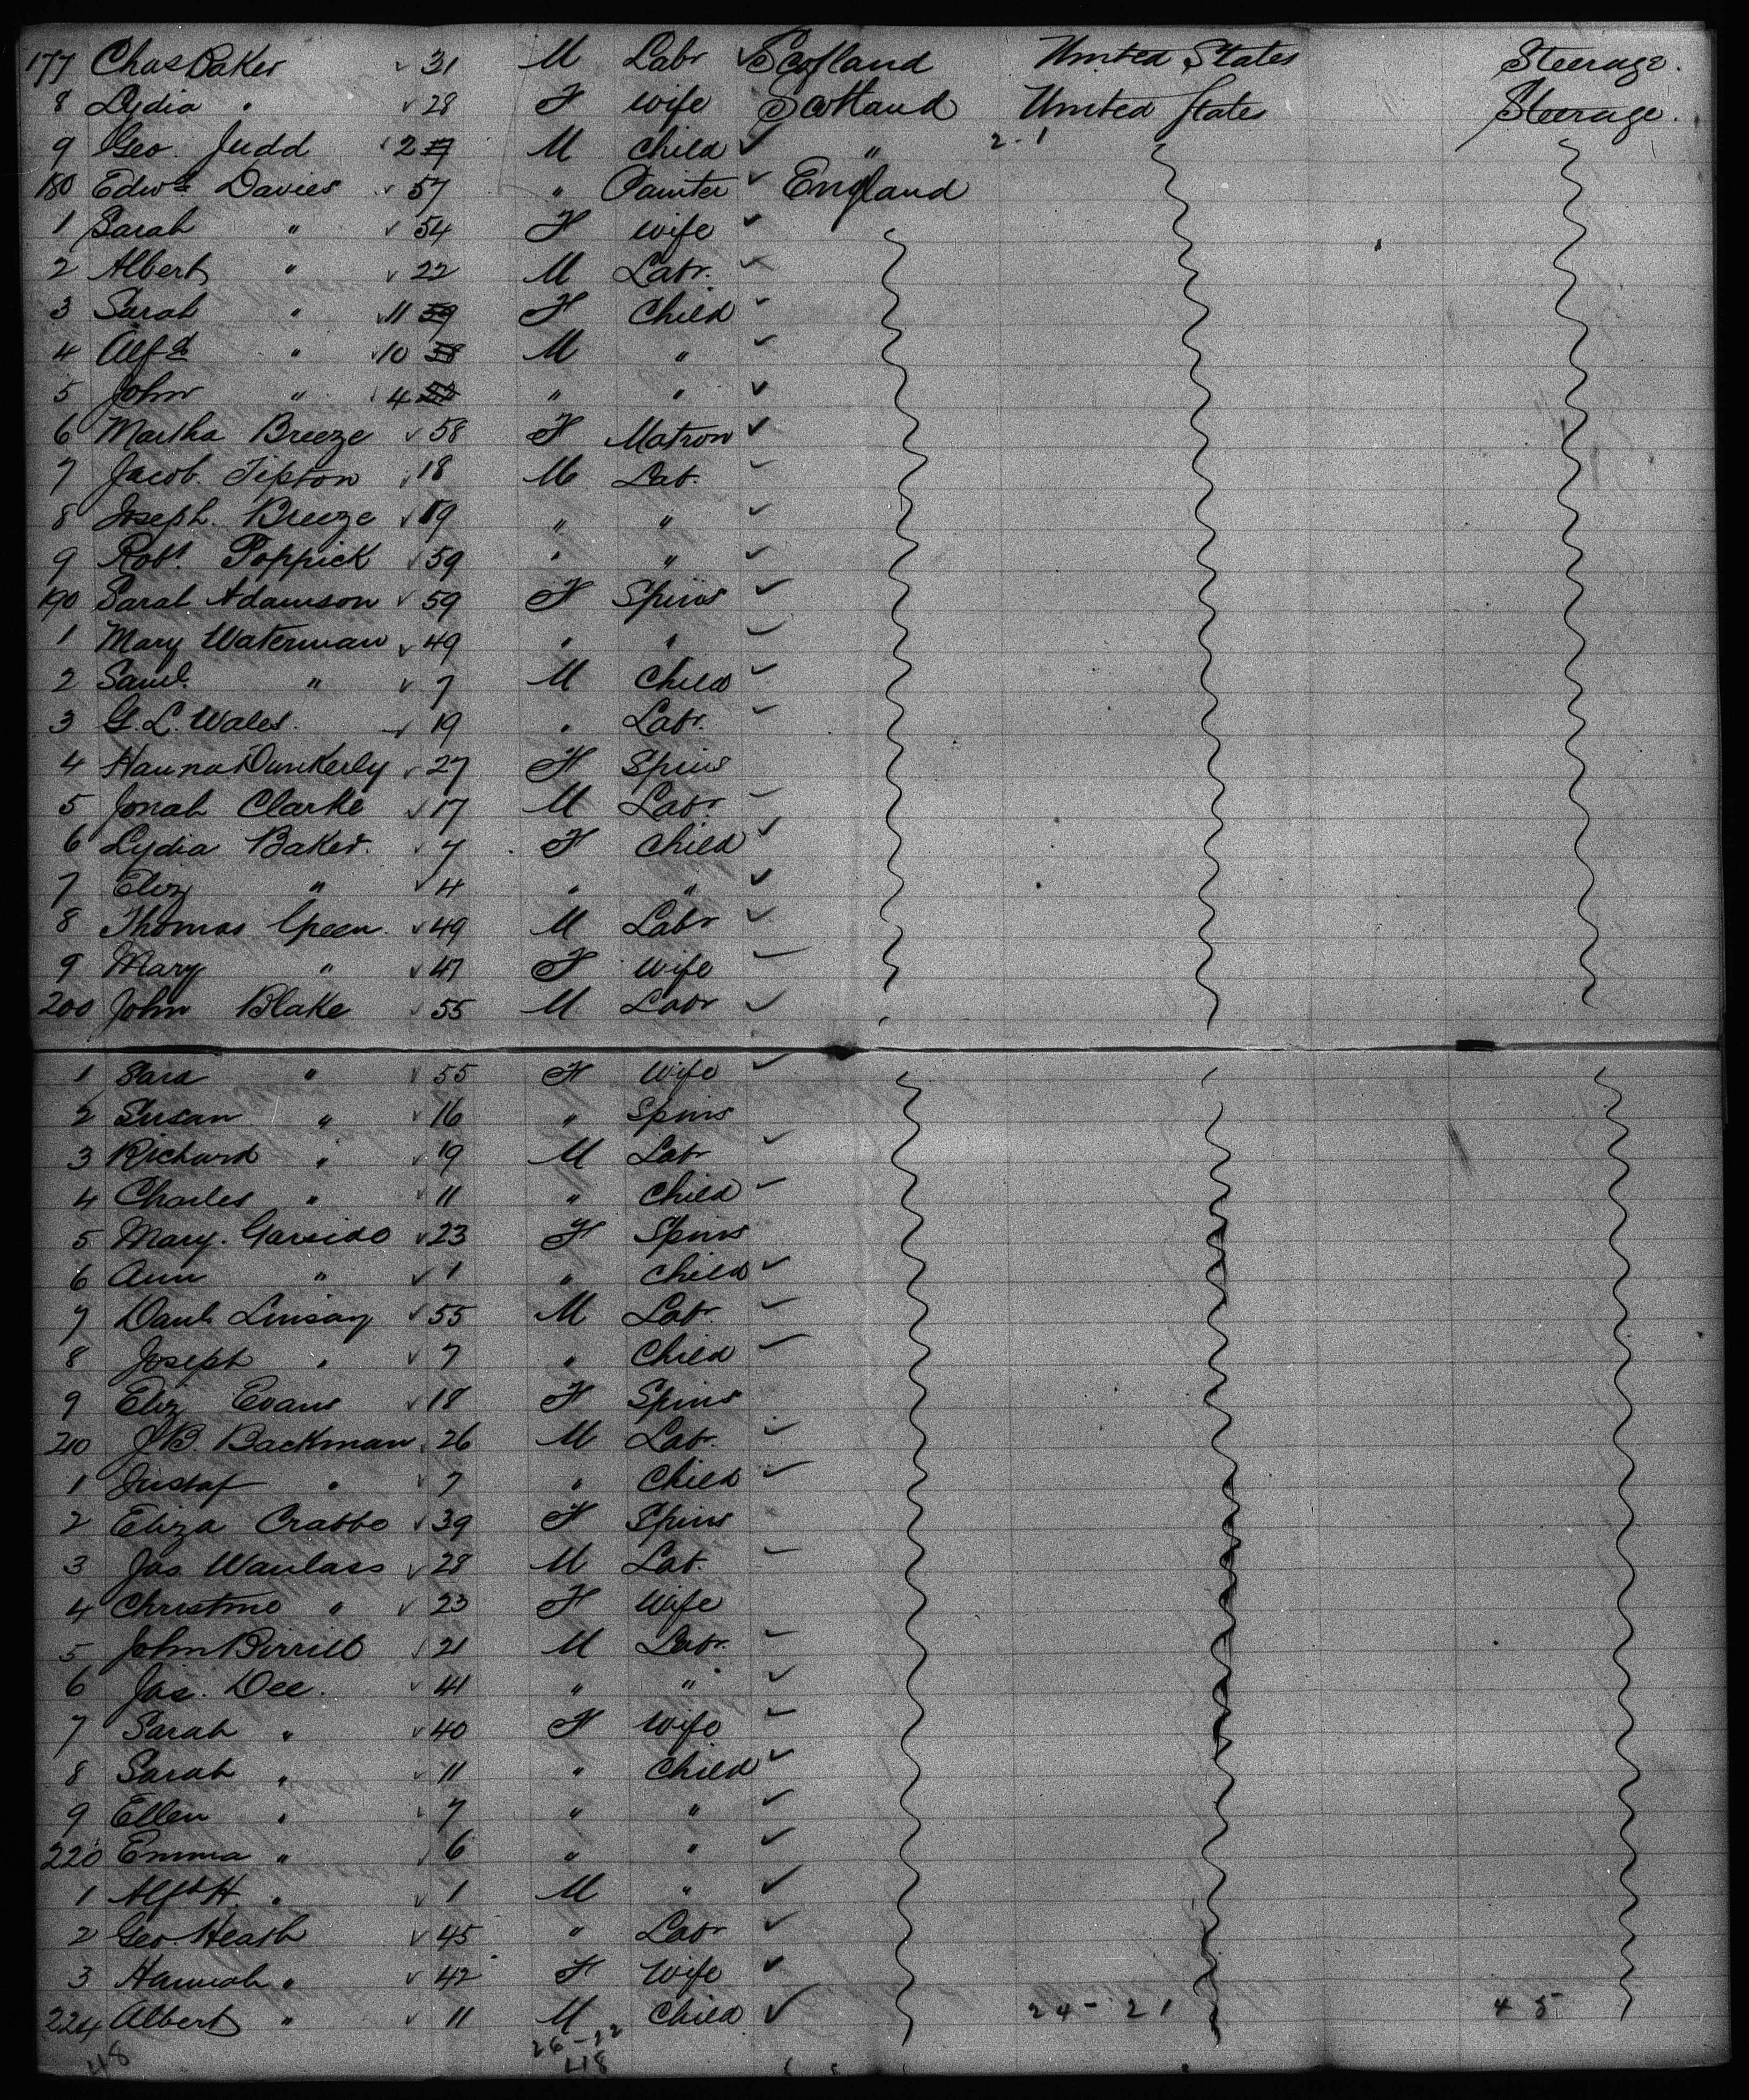 177 Chas Baker 31 M Labr Scotland United States Steerage.
8 Lydia " 28 F wife Scotland United States Steerage.
9 Geo. Judd 2 M Child " 2-1
180 Edwd Davies 57 " Painter England
1 Sarah " 54 F wife
2 Albert " 22 M Labr.
3 Sarah " 11 59 F Child
4 Alfd " 10 58 M "
5 John " 4 " "
6 Martha Breeze 58 F Matron
7 Jacob Tipton 18 M Lab.
8 Joseph Breeze 19 " "
9 Robt. Poppick 59 " "
190 Sarah Adamson 59 F Spins
1 Mary Waterman 49 " "
2 Saml. " 7 M Child
3 G. L. Wales. 19 " Labr.
4 Hanna Dunkerly 27 F Spins
5 Jonah Clarke 17 M Labr.
6 Lydia Baker. 7 F Child
7 Eliz " 4 " "
8 Thomas Green. 49 M Labr
9 Mary " 47 F Wife
200 John Blake 55 M Labr
1 Sara " 55 F Wife
2 Susan " 16 " Spins
3 Richard " 19 M Labr
4 Charles " 11 " Child
5 Mary. Garsido 23 F Spins
6 Ann " 1 " Child
7 Danl. Linsay 55 M Labr.
8 Joseph " 7 " Child
9 Eliz Evans 18 F Spins
210 J.B. Backman 26 M Labr.
1 Gustaf " 7 " Child
2 Eliza Crabbe 39 F Spins
3 Jas Wanlass 28 M Lab.
4 Christine " 23 F Wife
5 John Birrill 21 M Labr.
6 Jas. Dee. 41 " "
7 Sarah " 40 F Wife
8 Sarah " 11 " Child
9 Ellen " 7 " "
220 Emma " 6 " "
1 Alfd H. " 1 M "
2 Geo. Heath 45 " Labr
3 Hannah " 42 F Wife
224 Albert " 11 M Child 24-21 45
48 26-12